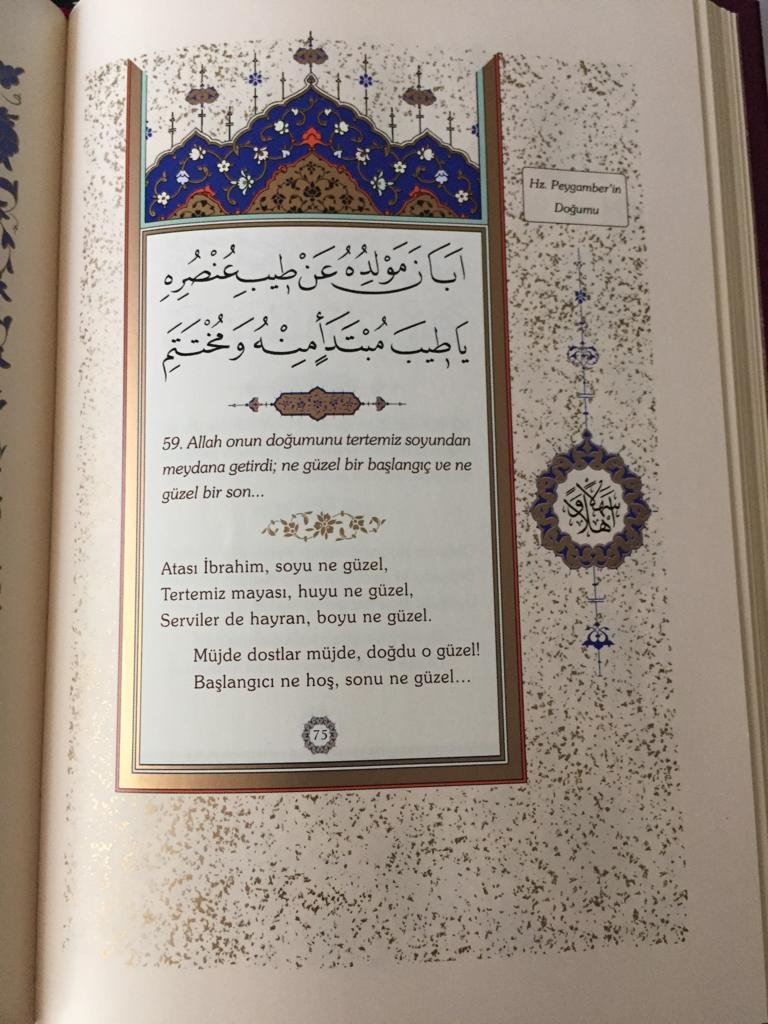 Hz. Peygamber'in
Doğumu
اَبَانَ مَوْلِدُهُ عَنْ طِيبِ عُنْصُرِهِ
يَا طِيبَ مُبْتَدَأٍ مِنْهُ وَمُخْتَتَمِ
59. Allah onun doğumunu tertemiz soyundan
meydana getirdi; ne güzel bir başlangıç ve ne
güzel bir son...
Atası İbrahim, soyu ne güzel,
Tertemiz mayası, huyu ne güzel,
Serviler de hayran, boyu ne güzel.
Müjde dostlar müjde, doğdu o güzel!
Başlangıcı ne hoş, sonu ne güzel...
75
اَهْلًا وَ سَهْلًا